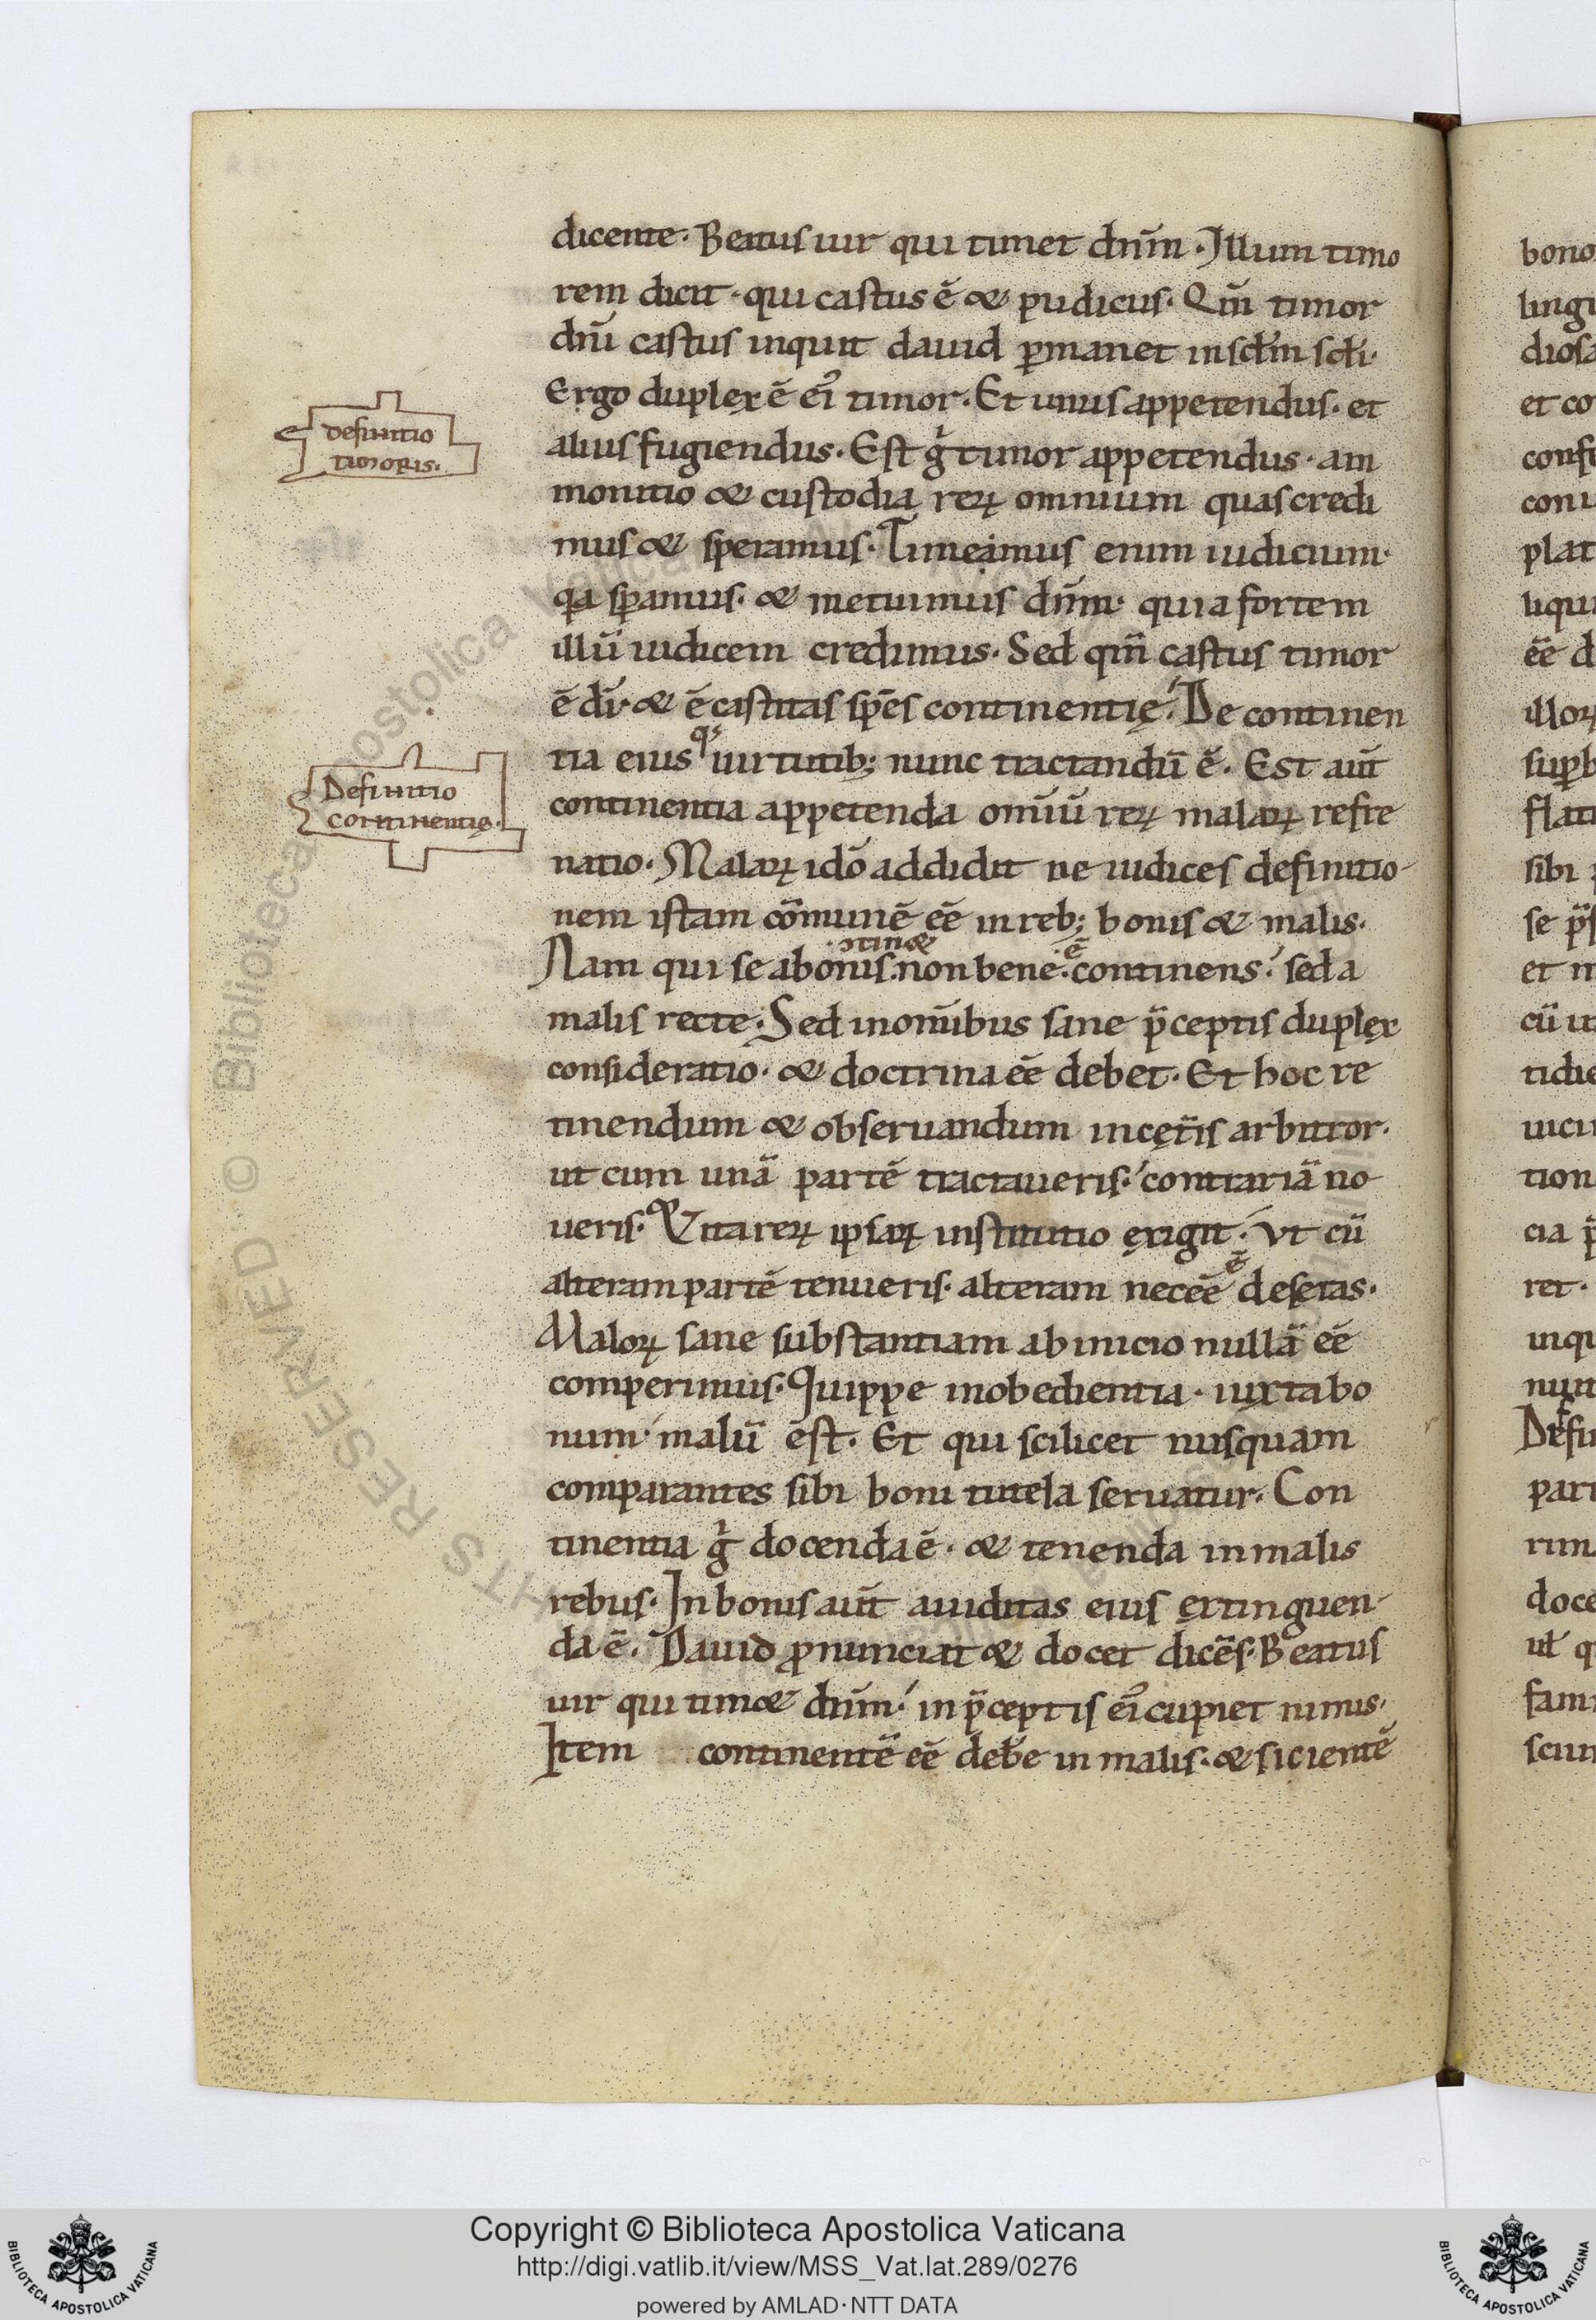 dicente. Beatus uir qui timet dnm̄. Illum timo
rem dicit. qui castus ē & pudicus. Qm̄ timor
dnī castus inquit dauid ꝑmanet insclm̄ scli.
Ergo duplex ē ei᾽ timor. Et unus appetendus. et
definitio
timoris.
alius fugiendus. Est g̊ timor appetendus. am
monitio & custodia reꝝ omnium quas credi
mus & speramus. Timeamus enim iudicium.
qa sꝑamus. & metuimus dnm̄. quia fortem
illū iudicem credimus. Sed qm̄ castus timor
ē dī. & ē castitas spēs continentię. De continen
tia eius qꝫ uirtutib; nunc tractandū ē. Est aut̄
Definitio
continentię.
continentia appetenda omīū reꝝ malaꝝ refre
natio. Malaꝝ idō addidit ne iudices definitio
nem istam cōmunē eē in reb; bonis & malis.
Nam qui se abonis ɔtin& non bene ē continens. sed a
malis recte. Sed inomībus sane p̄ceptis duplex
consideratio. & doctrina eē debet. Et hoc re
tinendum & obseruandum incęt̄is arbitror.
ut cum unā partē tractaueris. contrariā no
ueris. Qd̄ ita reꝝ ipsaꝝ institutio exigit. Vt cū
alteram partē tenueris. alteram necēe ē deseras.
Maloꝝ sane substantiam ab inicio nullā eē
comperimus. Quippe inobedientia. iuxta bo
num malū est. Et qui scilicet nusquam
comparantes sibi boni tutela seruatur. Con
tinentia g̊ docenda ē. & tenenda in malis
rebus. In bonis aut̄ auiditas eius extinguen
da ē. Dauid ꝓnunciat & docet dicēs. Beatus
uir qui tim& dnm̄. in p̄ceptis ei᾽ cupiet nimis.
Item continentē eē debe in malis. & sicientē
bono
lingu
diosa
et co
confe
coni
plat
liqui
eē d
illoꝝ
suꝑb
flati
sibi
se p̄s
et m
cū ui
tidie
uici
tion
cia p̄
ret.
inqu
nun
Defi
part
rim
doce
ul̄ q
fami
scim
Copyright © Biblioteca Apostolica Vaticana
http://digi.vatlib.it/view/MSS_Vat.lat.289/0276
powered by AMLAD·NTT DATA
BIBLIOTECA APOSTOLICA VATICANA
BIBLIOTECA APOSTOLICA VATICANA